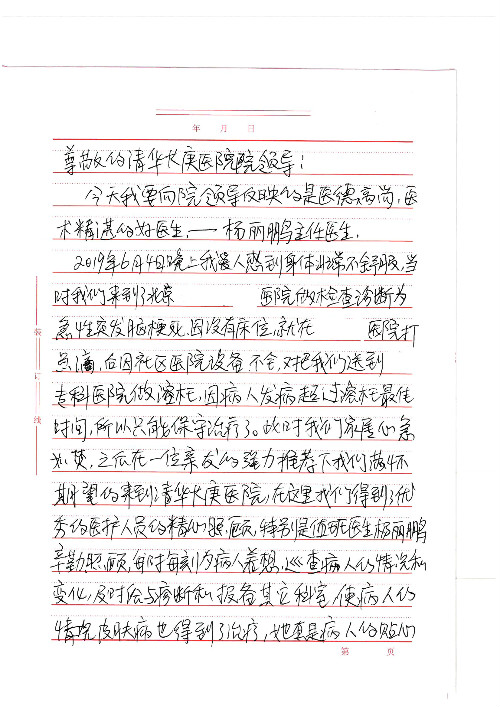 年 月 日
尊敬的清华长庚医院院领导：
今天我要向院领导反映的是医德高尚，医
术精湛的好医生，——杨丽鹏主任医生。
2019年6月4日晚上我爱人感到身体非常不舒服，当
时我们来到了北京 医院做术检查诊断为
急性突发脑梗死，因没有床位，就在 医院打
点滴，后因社区医院设备不全，对把我们送到
专科医院做溶栓，因病人发病超过溶栓最佳
时间，所以只能保守治疗了。此时我们家属心急
如焚，之后在一位亲友的强力推荐下我们满怀
期望的来到了清华长庚医院，在这里我们得到了优
秀的医护人员的精心照顾，特别是值班医生杨丽鹏
辛勤照顾，每时每刻为病人着想，巡查病人的情况和
变化，及时给与诊断和报备其它科室，使病人的
情况皮肤病也得到了治疗，她真是病人的贴心
装
订
线
第 页